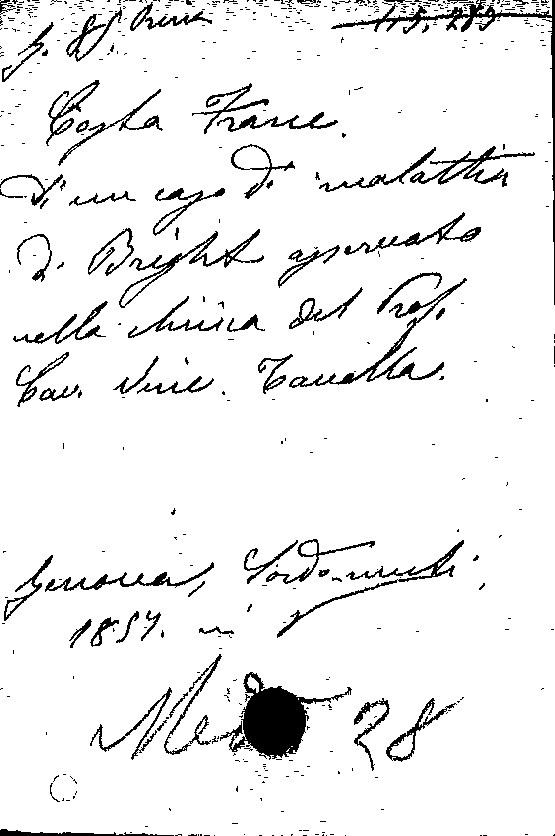 115. 289
Costa Franc.
D'un caso di malattia
di Bright osservato
nella clinica del Prof.
Cav. Vinc. Tavella.
Genova, Sordo-muti,
1857. in
Med 28